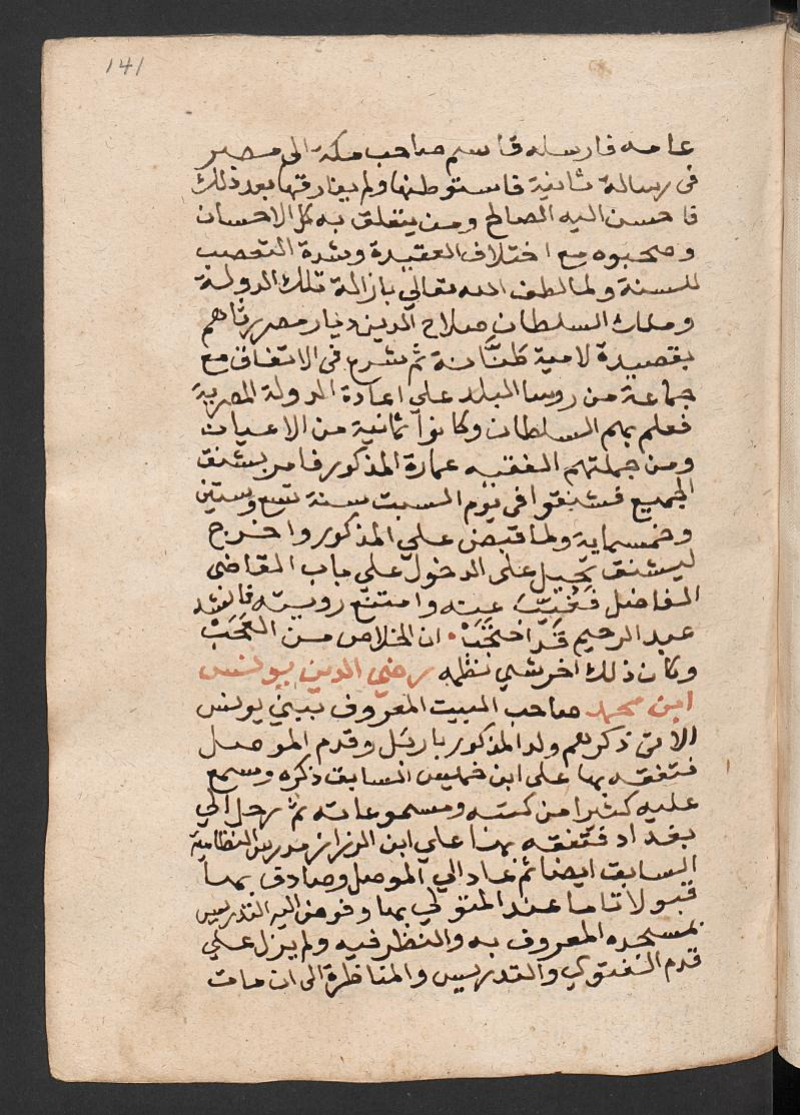 141
عامه فارسله قاسم صاحب مكة الى مصر
فى رسالة ثانية فاستوطنها ولم يفارقها بعد ذلك
فاحسن اليه الصالح ومن يتعلق به كل الاحسان
وصحبوه مع اختلاف العقيدة وشدة التعصب
للسنة ولما لطف الله تعالي بازالة تلك الدولة
وملك السلطان صلاح الدين ديار مصر رثاهم
بقصيدة لامية طنَّانة ثم شرع فى الاتفاق مع
جماعة من روسا البلد علي اعادة الدولة المصرية
فعلم بهم السلطان وكانوا ثمانية من الاعيان
ومن جملتهم الفقيه عمارة المذكور فامر بشنق
الجميع فشنقوا في يوم السبت سنة تسع وستين
وخمسماية ولما قبض علي المذكور واخرج
ليشنق تحيل على الدخول علي باب القاضى
الفاضل فغيّب عنه وامتنع رويته فانشد
عبد الرحيم قَد احتَجَبْ • ان الخلاص من العَجَبْ
وكان ذلك اخر شي نظمه رضي الدين يونس
ابن محمد صاحب البيت المعروف ببني يونس
الاتى ذكرهم ولد المذكور باربل وقدم الموصل
فتفقه بها على ابن خميس السابق ذكره وسمع
عليه كثيرا من كتبه ومسموعاته ثم رحل الي
بغداد فتفقه بها علي ابن الرزاز مدرس النظامية
السابق ايضا ثم عاد الي الموصل وصادف بها
قبولا تاما عند المتولي بها وفوض اليه التدريس
بمسجده المعروف به والنظر فيه ولم يزل علي
قدم الفتوي والتدريس والمناظرة الى ان مات